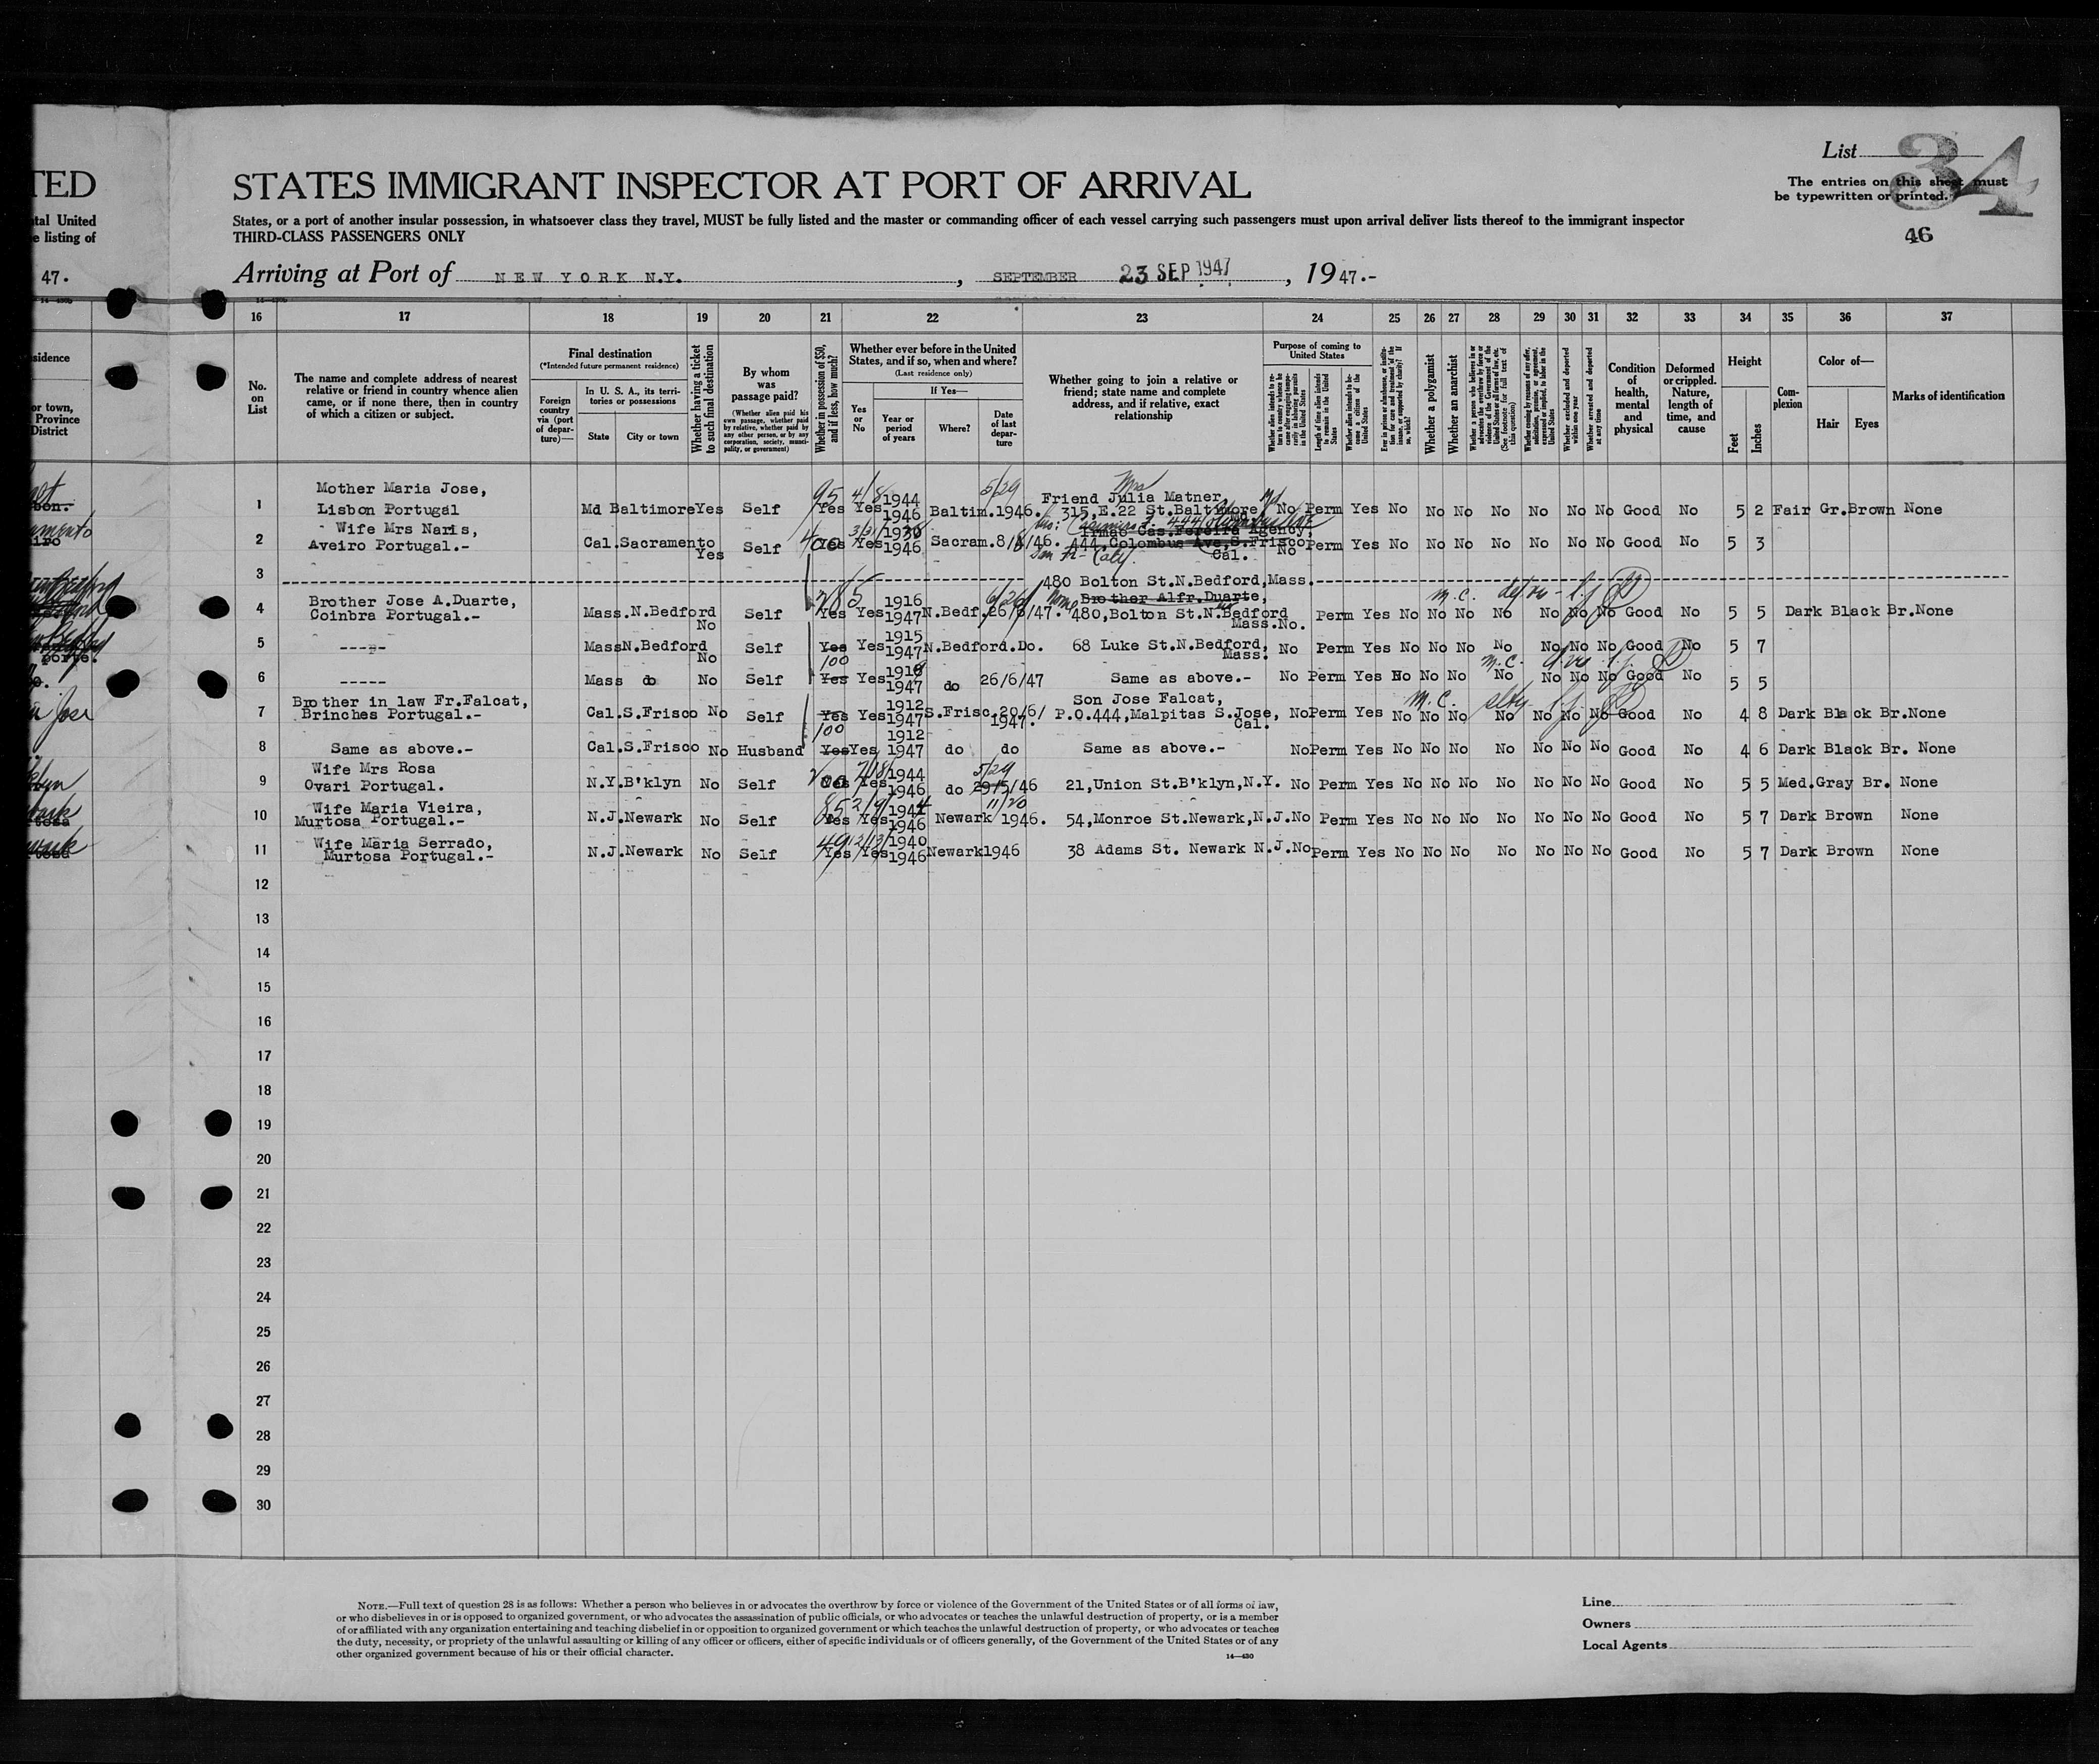 TED
tal United
e listing of
47.
sidence
or town,
Province
District
List
34
The entries on this sheet must
be typewritten or printed.
46
STATES IMMIGRANT INSPECTOR AT PORT OF ARRIVAL
States, or a port of another insular possession, in whatsoever class they travel, MUST be fully listed and the master or commanding officer of each vessel carrying such passengers must upon arrival deliver lists thereof to the immigrant inspector
THIRD-CLASS PASSENGERS ONLY
Arriving at Port of NEW YORK N.Y. , SEPTEMBER 23 SEP 1947 , 19 47.-
16 17 18 19 20 21 22 23 24 25 26 27 28 29 30 31 32 33 34 35 36 37
No. on List
The name and complete address of nearest relative or friend in country whence alien came, or if none there, then in country of which a citizen or subject.
Final destination
(*Intended future permanent residence)
Foreign country via (port of departure)—
In U. S. A., its territories or possessions
State
City or town
Whether having a ticket to such final destination
By whom was passage paid?
(Whether alien paid his own passage, whether paid by relative, whether paid by any other person, or by any corporation, society, municipality, or government)
Whether in possession of $50, and if less, how much?
Whether ever before in the United States, and if so, when and where?
(Last residence only)
Yes or No
If Yes—
Year or period of years
Where?
Date of last departure
Whether going to join a relative or friend; state name and complete address, and if relative, exact relationship
Purpose of coming to United States
Length of time alien intends to remain in the United States
Whether alien intends to become a citizen of the United States
Whether a polygamist
Whether an anarchist
Whether excluded and deported within one year
Whether arrested and deported at any time
Condition of health, mental and physical
Deformed or crippled. Nature, length of time, and cause
Height
Feet
Inches
Complexion
Color of—
Hair
Eyes
Marks of identification
1 Mother Maria Jose, Lisbon Portugal Md Baltimore Yes Self 95 Yes 4/8 Yes 1944 1946 Baltim. 5/29 1946. Mrs Friend Julia Matner, 315,E.22 St.Baltimore Md No Perm Yes No No No No No No No Good No 5 2 Fair Gr. Brown None
2 Wife Mrs Naris, Aveiro Portugal.- Cal. Sacramento Yes Self 400 Yes Yes 1946 Sacram. 8/8/46. Irmao Cas.Pereira Agency, 444 Colombus Ave,S.Frisco Cal. No Perm Yes No No No No No No No Good No 5 3
3 480 Bolton St.N.Bedford,Mass.
4 Brother Jose A.Duarte, Coinbra Portugal.- Mass. N.Bedford No Self Yes Yes 1916 1947 N.Bedf. 26/6/47. None Brother Alfr.Duarte, 480,Bolton St.N.Bedford Mass. No. Perm Yes No No No No No No No Good No 5 5 Dark Black Br. None
m.c.
5 ----- Mass N.Bedford No Self Yes Yes 1915 1947 N.Bedford. Do. 68 Luke St.N.Bedford, Mass. No Perm Yes No No No No No No No Good No 5 7
6 ----- Mass do No Self 100 Yes Yes 1918 1947 do 26/6/47 Same as above.- No Perm Yes No No No No No No No Good No 5 5
m.c.
7 Brother in law Fr.Falcat, Brinches Portugal.- Cal. S.Frisco No Self Yes Yes 1912 1947 S.Frisc. 20/6/ 1947. Son Jose Falcat, P.O.444,Malpitas S.Jose, Cal. No Perm Yes No No No No No No No Good No 4 8 Dark Black Br. None
m.c.
8 Same as above.- Cal. S.Frisco No Husband 100 Yes Yes 1912 1947 do do Same as above.- No Perm Yes No No No No No No No Good No 4 6 Dark Black Br. None
9 Wife Mrs Rosa Ovari Portugal. N.Y. B'klyn No Self Yes Yes 1944 1946 do 5/29 29/5/46 21,Union St.B'klyn,N.Y. No Perm Yes No No No No No No No Good No 5 5 Med. Gray Br. None
10 Wife Maria Vieira, Murtosa Portugal.- N.J. Newark No Self 85 Yes Yes 1944 1946 Newark 11/20 1946. 54,Monroe St.Newark,N.J. No Perm Yes No No No No No No No Good No 5 7 Dark Brown None
11 Wife Maria Serrado, Murtosa Portugal.- N.J. Newark No Self 49 Yes Yes 1940 1946 Newark 1946 38 Adams St. Newark N.J. No Perm Yes No No No No No No No Good No 5 7 Dark Brown None
12
13
14
15
16
17
18
19
20
21
22
23
24
25
26
27
28
29
30
NOTE.—Full text of question 28 is as follows: Whether a person who believes in or advocates the overthrow by force or violence of the Government of the United States or of all forms of law,
or who disbelieves in or is opposed to organized government, or who advocates the assassination of public officials, or who advocates or teaches the unlawful destruction of property, or is a member
of or affiliated with any organization entertaining and teaching disbelief in or opposition to organized government or which teaches the unlawful destruction of property, or who advocates or teaches
the duty, necessity, or propriety of the unlawful assaulting or killing of any officer or officers, either of specific individuals or of officers generally, of the Government of the United States or of any
other organized government because of his or their official character.
14—430
Line
Owners
Local Agents